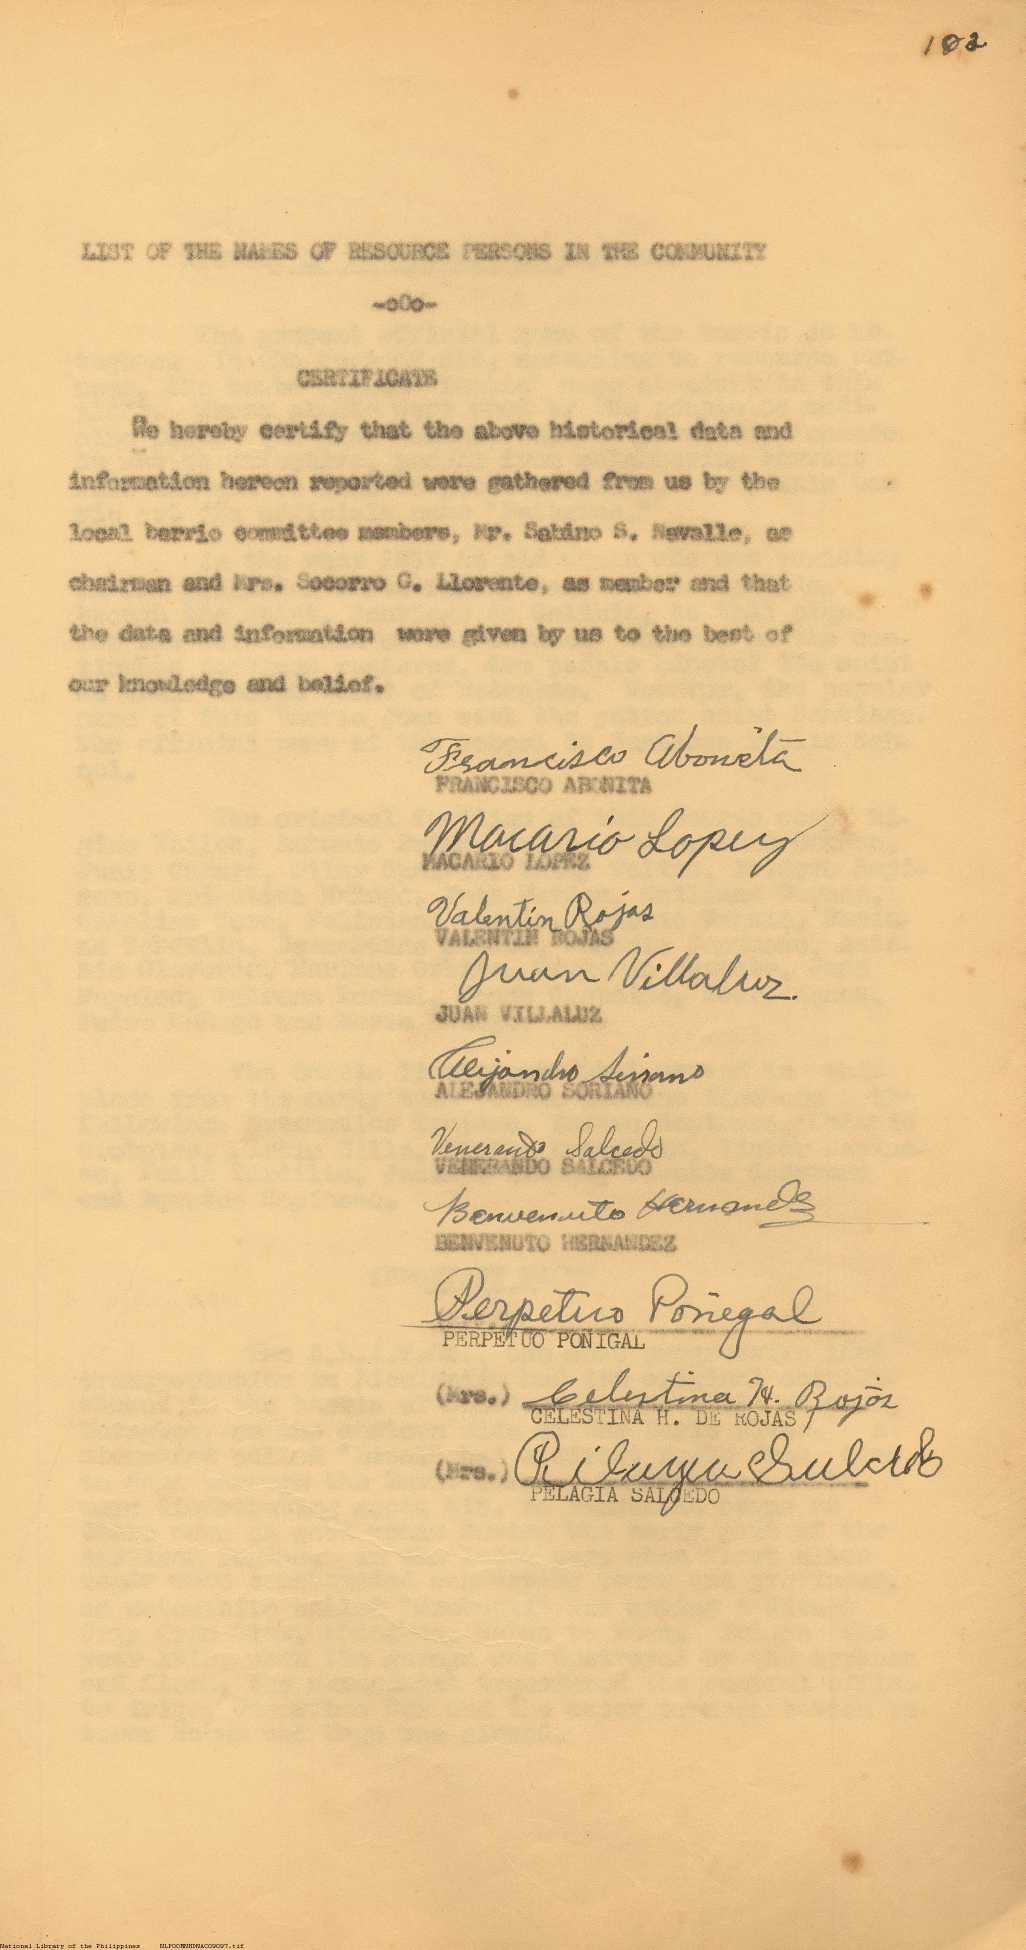 102
LIST OF THE NAMES OF RESOURCE PERSONS IN THE COMMUNITY
-oOo-
CERTIFICATE
We hereby certify that the above historical data and
information hereon reported were gathered from us by the
local barrio committee members, Mr. Sabino S. Nevalle, as
chairman and Mrs. Socorro G. Llorente, as member and that
the data and information were given by us to the best of
our knowledge and belief.
Francisco Abonita
FRANCISCO ABONITA
Macario Lopez
MACARIO LOPEZ
Valentin Rojas
VALENTIN ROJAS
Juan Villaluz.
JUAN VILLALUZ
Alejandro Siriano
ALEJANDRO SORIANO
Venerando Salcedo
VENERANDO SALCEDO
Benvenuto Hernandez
BENVENUTO HERNANDEZ
Perpetuo Poñegal
PERPETUO POÑIGAL
(Mrs.) Celestina H. Rojas
CELESTINA H. DE ROJAS
(Mrs.) Pilagia Salcedo
PELAGIA SALCEDO
National Library of the Philippines NLPOOMNHDNAC09097.tif